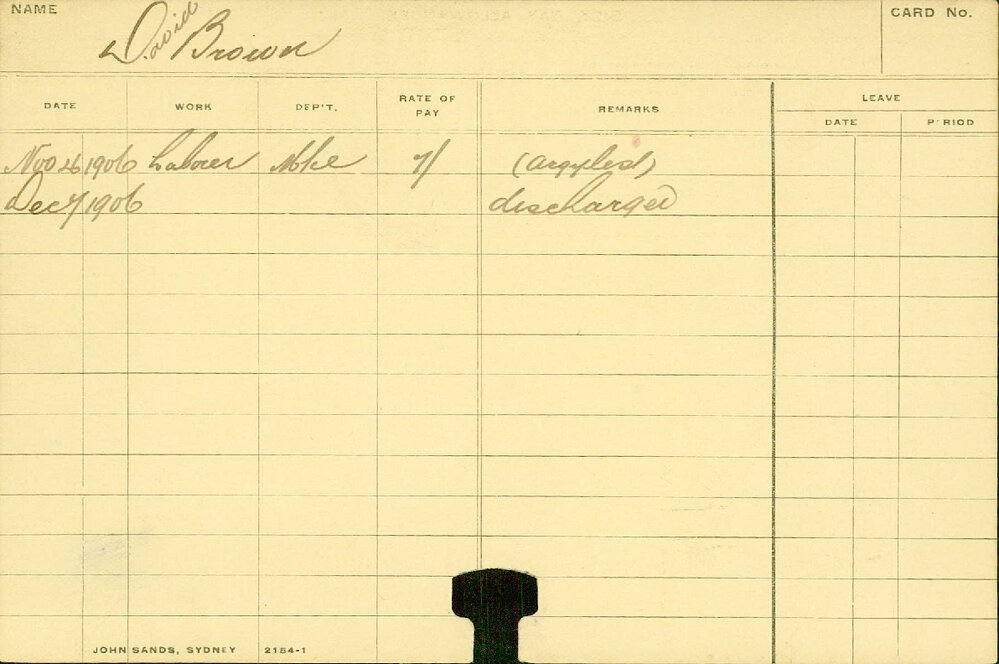 NAME
David Brown
CARD No.
DATE WORK DEP'T. RATE OF PAY REMARKS LEAVE
DATE PERIOD
Nov 26 1906 Labourer 7/ (argyles)
Dec 7 1906 discharged
JOHN SANDS, SYDNEY 2154-1